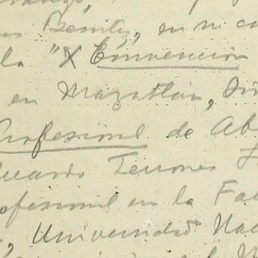 Benitz, en mi ca
la "X Convención
en Mazatlan,
Profesional de Ab
uardo Terrones
ofesional en la Fac
, Universidad Nac